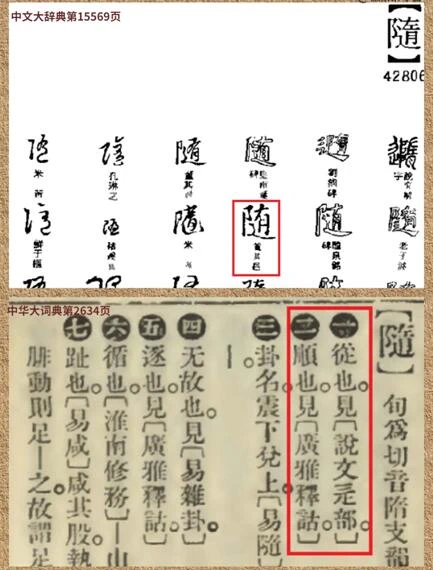 中文大辞典第15569页
【隨】
42806
隨
隨
隨
隨
孔琳之
米芾
隨
隨
随
董其昌
隨
米芾
鮮于樞
中华大词典第2634页
【隨】旬為切音隋支
㊀從也。見〔說文辵部〕。
㊁順也。見〔廣雅釋詁〕。
㊂卦名。震下兌上〔易隨〕
｜
㊃无故也。見〔易雜卦〕。
㊄逐也。見〔廣雅釋詁〕。
㊅循也。〔淮南修務〕｜山
㊆趾也。〔易咸〕咸其股執
腓動則足｜之故謂足